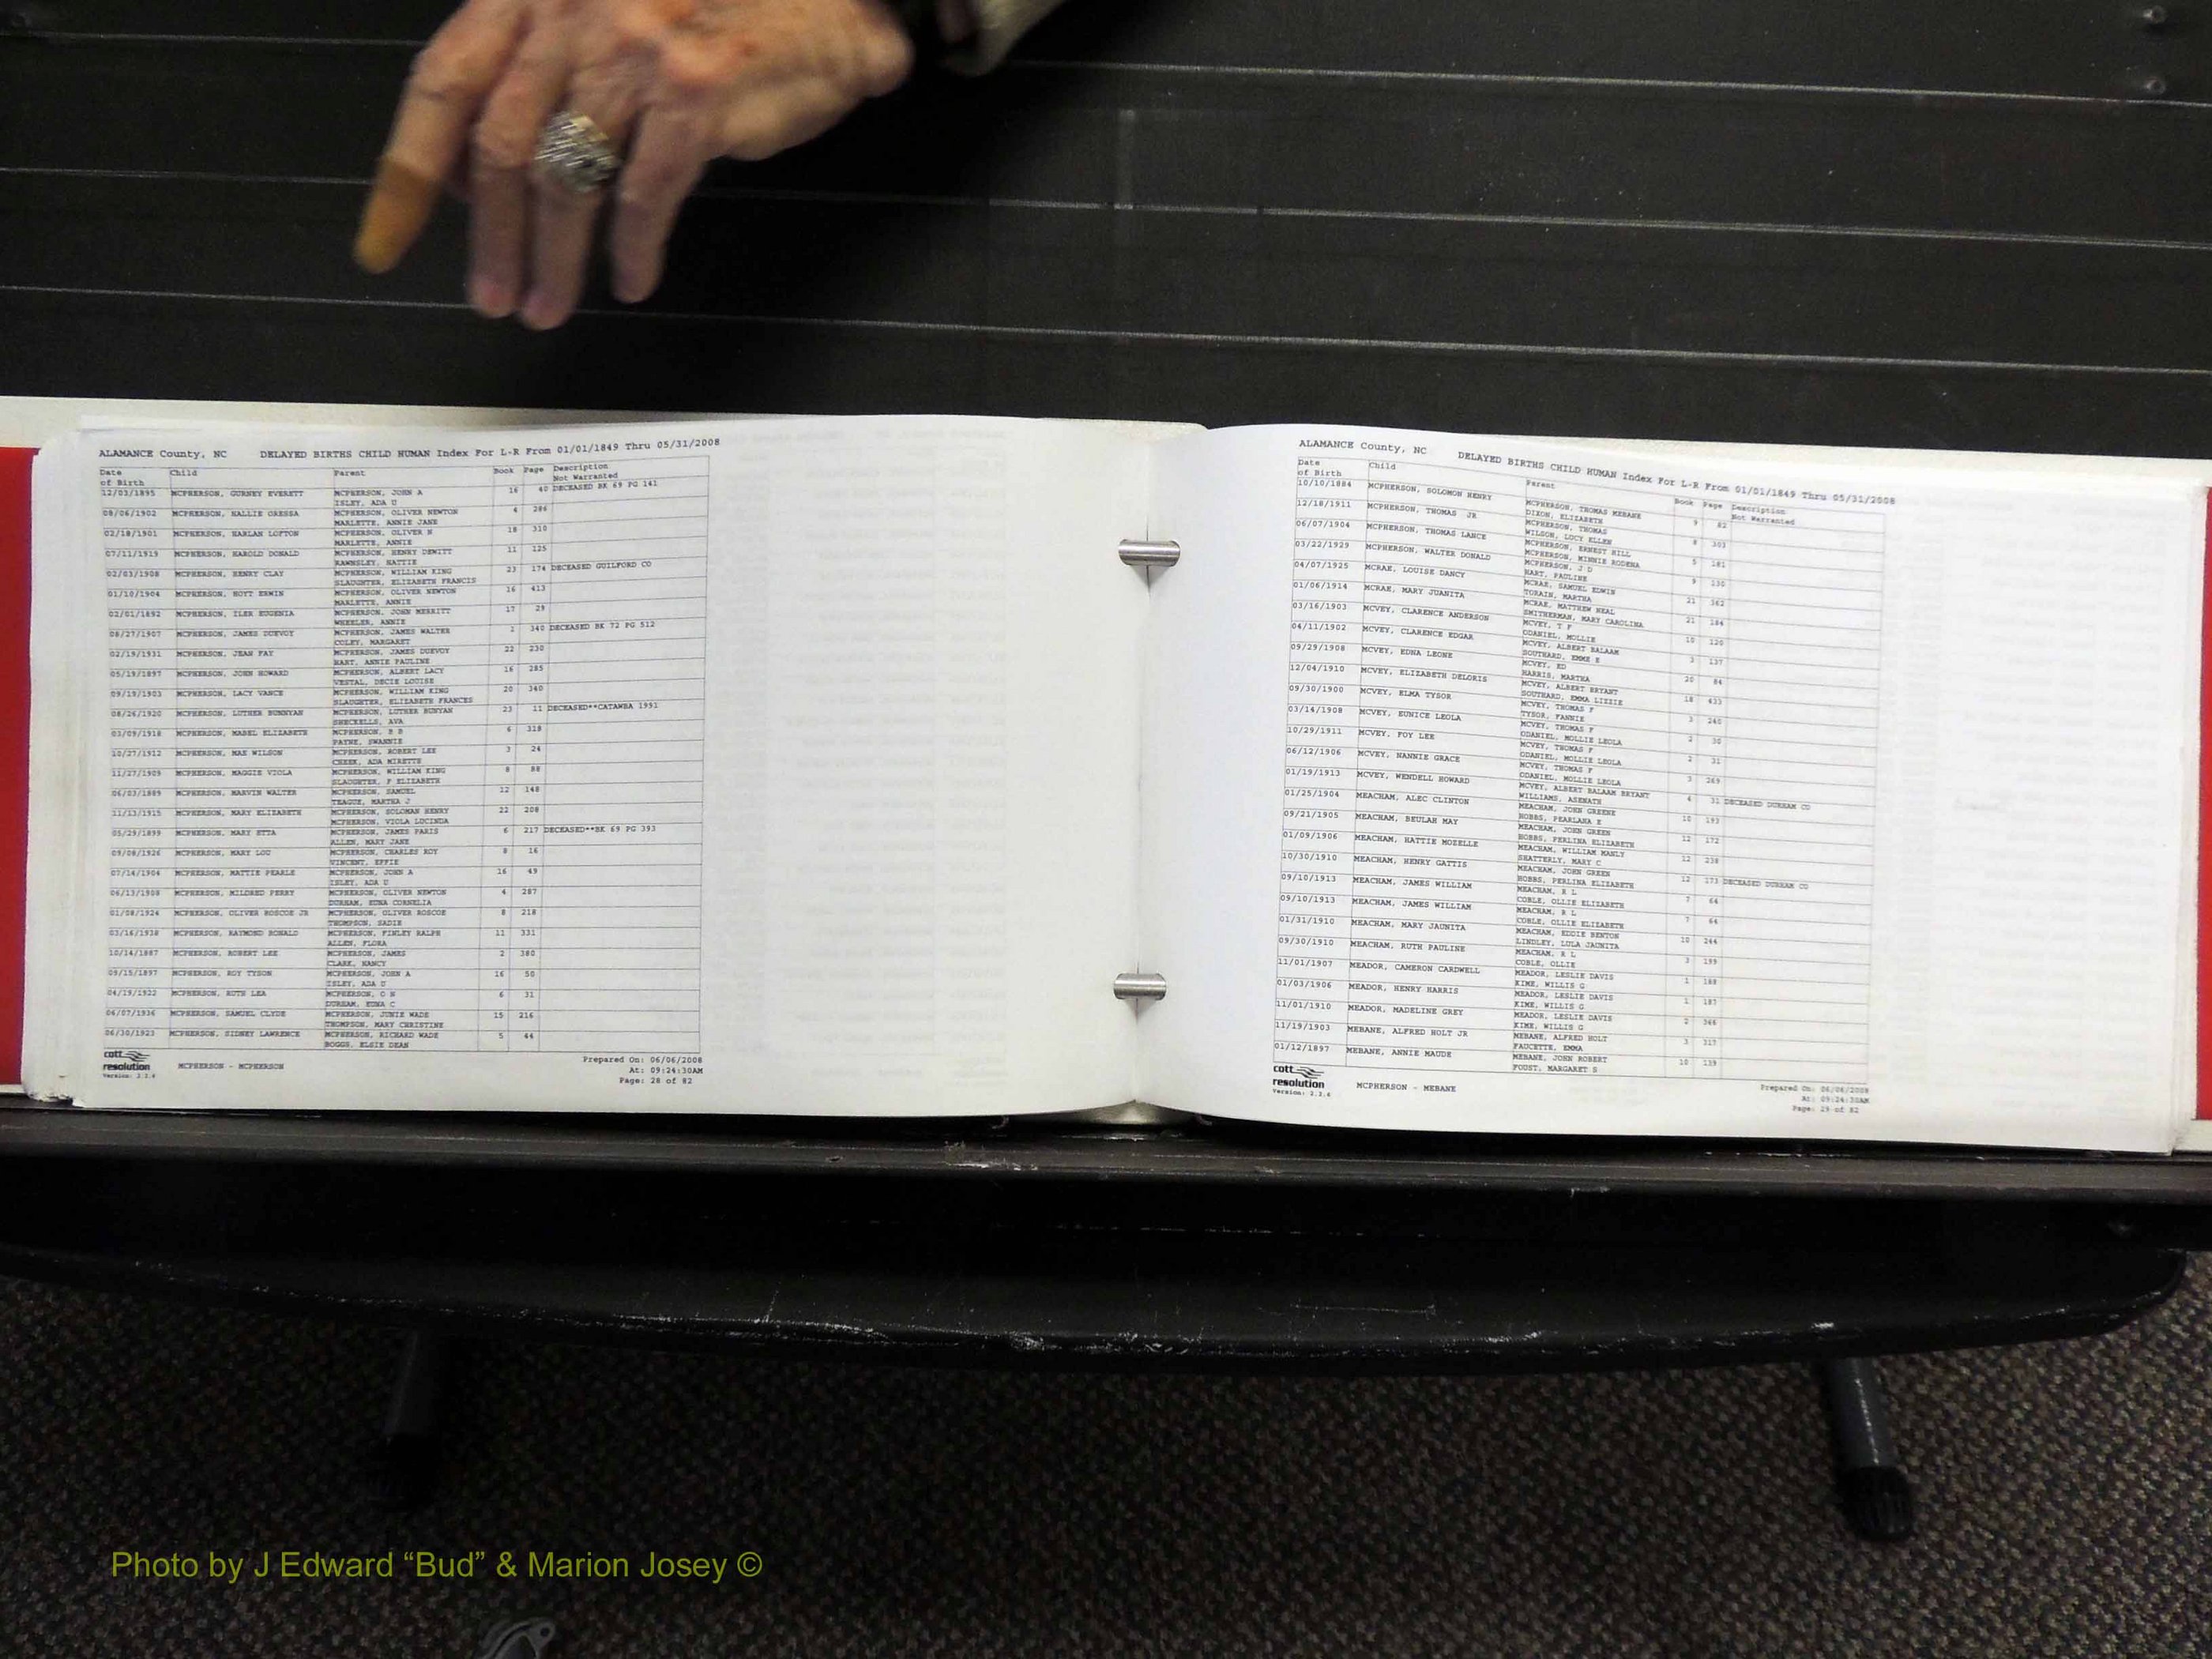 ALAMANCE County, NC DELAYED BIRTHS CHILD HUMAN Index For L-R From 01/01/1849 Thru 05/31/2008
Date Child Parent Book Page Description
of Birth Not Warranted
12/03/1895 MCPHERSON, GURNEY EVERETT MCPHERSON, JOHN A 16 40 DECEASED BK 69 PG 141
ISLEY, ADA U
08/06/1902 MCPHERSON, HALLIE ORESSA MCPHERSON, OLIVER NEWTON 4 286
MARLETTE, ANNIE JANE
02/18/1901 MCPHERSON, HARLAN LOFTON MCPHERSON, OLIVER N 18 310
MARLETTE, ANNIE
07/11/1919 MCPHERSON, HAROLD DONALD MCPHERSON, HENRY DEWITT 11 125
RAWNSLEY, HATTIE
02/03/1908 MCPHERSON, HENRY CLAY MCPHERSON, WILLIAM KING 23 174 DECEASED GUILFORD CO
SLAUGHTER, ELIZABETH FRANCIS
01/10/1904 MCPHERSON, HOYT ERWIN MCPHERSON, OLIVER NEWTON 16 413
MARLETTE, ANNIE
02/01/1892 MCPHERSON, ILER EUGENIA MCPHERSON, JOHN MERRITT 17 29
WHEELER, ANNIE
08/27/1907 MCPHERSON, JAMES DUEVOY MCPHERSON, JAMES WALTER 1 340 DECEASED BK 72 PG 512
COLEY, MARGARET
02/19/1931 MCPHERSON, JEAN FAY MCPHERSON, JAMES DUEVOY 22 230
HART, ANNIE PAULINE
05/19/1897 MCPHERSON, JOHN HOWARD MCPHERSON, ALBERT LACY 16 285
VESTAL, DECIE LOUISE
09/19/1903 MCPHERSON, LACY VANCE MCPHERSON, WILLIAM KING 20 340
SLAUGHTER, ELIZABETH FRANCES
08/26/1920 MCPHERSON, LUTHER BUNNYAN MCPHERSON, LUTHER BUNYAN 23 11 DECEASED**CATAWBA 1991
SHECKELLS, AVA
03/09/1918 MCPHERSON, MABEL ELIZABETH MCPHERSON, B B 6 318
PAYNE, SWANNIE
10/27/1912 MCPHERSON, MAE WILSON MCPHERSON, ROBERT LEE 3 24
CHEEK, ADA MIRETTE
11/27/1909 MCPHERSON, MAGGIE VIOLA MCPHERSON, WILLIAM KING 8 88
SLAUGHTER, F ELIZABETH
06/03/1889 MCPHERSON, MARVIN WALTER MCPHERSON, SAMUEL 12 148
TEAGUE, MARTHA J
11/13/1915 MCPHERSON, MARY ELIZABETH MCPHERSON, SOLOMAN HENRY 22 208
MCPHERSON, VIOLA LUCINDA
05/29/1899 MCPHERSON, MARY ETTA MCPHERSON, JAMES PARIS 6 217 DECEASED**BK 69 PG 393
ALLEN, MARY JANE
09/08/1926 MCPHERSON, MARY LOU MCPHERSON, CHARLES ROY 8 16
VINCENT, EFFIE
07/14/1904 MCPHERSON, MATTIE PEARLE MCPHERSON, JOHN A 16 49
ISLEY, ADA U
06/13/1908 MCPHERSON, MILDRED PERRY MCPHERSON, OLIVER NEWTON 4 287
DURHAM, EDNA CORNELIA
01/08/1924 MCPHERSON, OLIVER ROSCOE JR MCPHERSON, OLIVER ROSCOE 8 218
THOMPSON, SADIE
03/16/1938 MCPHERSON, RAYMOND RONALD MCPHERSON, FINLEY RALPH 11 331
ALLEN, FLORA
10/14/1887 MCPHERSON, ROBERT LEE MCPHERSON, JAMES 2 380
CLARK, NANCY
09/15/1897 MCPHERSON, ROY TYSON MCPHERSON, JOHN A 16 50
ISLEY, ADA U
04/19/1922 MCPHERSON, RUTH LEA MCPHERSON, O N 6 31
DURHAM, EDNA C
06/07/1936 MCPHERSON, SAMUEL CLYDE MCPHERSON, JUNIE WADE 15 216
THOMPSON, MARY CHRISTINE
06/30/1923 MCPHERSON, SIDNEY LAWRENCE MCPHERSON, RICHARD WADE 5 44
BOGGS, ELSIE DEAN
cott
resolution MCPHERSON - MCPHERSON Prepared On: 06/06/2008
Version: 2.2.4 At: 09:24:30AM
Page: 28 of 82
ALAMANCE County, NC DELAYED BIRTHS CHILD HUMAN Index For L-R From 01/01/1849 Thru 05/31/2008
Date Child Parent Book Page Description
of Birth Not Warranted
10/10/1884 MCPHERSON, SOLOMON HENRY MCPHERSON, THOMAS MEBANE 9 82
DIXON, ELIZABETH
12/18/1911 MCPHERSON, THOMAS JR MCPHERSON, THOMAS 8 303
WILSON, LUCY ELLEN
06/07/1904 MCPHERSON, THOMAS LANCE MCPHERSON, ERNEST HILL 5 181
MCPHERSON, MINNIE RODENA
03/22/1929 MCPHERSON, WALTER DONALD MCPHERSON, J D 9 130
HART, PAULINE
04/07/1925 MCRAE, LOUISE DANCY MCRAE, SAMUEL EDWIN 21 362
TORAIN, MARTHA
01/06/1914 MCRAE, MARY JUANITA MCRAE, MATTHEW NEAL 21 184
SMITHERMAN, MARY CAROLINA
03/16/1903 MCVEY, CLARENCE ANDERSON MCVEY, T F 10 120
ODANIEL, MOLLIE
04/11/1902 MCVEY, CLARENCE EDGAR MCVEY, ALBERT BALAAM 3 137
SOUTHARD, EMME E
09/29/1908 MCVEY, EDNA LEONE MCVEY, ED 20 84
HARRIS, MARTHA
12/04/1910 MCVEY, ELIZABETH DELORIS MCVEY, ALBERT BRYANT 18 433
SOUTHARD, EMMA LIZZIE
09/30/1900 MCVEY, ELMA TYSOR MCVEY, THOMAS F 3 240
TYSOR, FANNIE
03/14/1908 MCVEY, EUNICE LEOLA MCVEY, THOMAS F 2 30
ODANIEL, MOLLIE LEOLA
10/29/1911 MCVEY, FOY LEE MCVEY, THOMAS F 2 31
ODANIEL, MOLLIE LEOLA
06/12/1906 MCVEY, NANNIE GRACE MCVEY, THOMAS F 3 269
ODANIEL, MOLLIE LEOLA
01/19/1913 MCVEY, WENDELL HOWARD MCVEY, ALBERT BALAAM BRYANT 4 31 DECEASED DURHAM CO
WILLIAMS, ASENATH
01/25/1904 MEACHAM, ALEC CLINTON MEACHAM, JOHN GREENE 10 193
HOBBS, PEARLANA E
09/21/1905 MEACHAM, BEULAH MAY MEACHAM, JOHN GREEN 12 172
HOBBS, PERLINA ELIZABETH
01/09/1906 MEACHAM, HATTIE MOZELLE MEACHAM, WILLIAM MANLY 12 238
SHATTERLY, MARY C
10/30/1910 MEACHAM, HENRY GATTIS MEACHAM, JOHN GREEN 12 173 DECEASED DURHAM CO
HOBBS, PERLINA ELIZABETH
09/10/1913 MEACHAM, JAMES WILLIAM MEACHAM, R L 7 64
COBLE, OLLIE ELIZABETH
09/10/1913 MEACHAM, JAMES WILLIAM MEACHAM, R L 7 64
COBLE, OLLIE ELIZABETH
01/31/1910 MEACHAM, MARY JAUNITA MEACHAM, EDDIE BENTON 10 244
LINDLEY, LULA JAUNITA
09/30/1910 MEACHAM, RUTH PAULINE MEACHAM, R L 3 199
COBLE, OLLIE
11/01/1907 MEADOR, CAMERON CARDWELL MEADOR, LESLIE DAVIS 1 188
KIME, WILLIS G
01/03/1906 MEADOR, HENRY HARRIS MEADOR, LESLIE DAVIS 1 187
KIME, WILLIS G
11/01/1910 MEADOR, MADELINE GREY MEADOR, LESLIE DAVIS 2 366
KIME, WILLIS G
11/19/1903 MEBANE, ALFRED HOLT JR MEBANE, ALFRED HOLT 3 317
FAUCETTE, EMMA
01/12/1897 MEBANE, ANNIE MAUDE MEBANE, JOHN ROBERT 10 139
FOUST, MARGARET S
cott
resolution MCPHERSON - MEBANE Prepared On: 06/06/2008
Version: 2.2.4 At: 09:24:30AM
Page: 29 of 82
Photo by J Edward “Bud” & Marion Josey ©